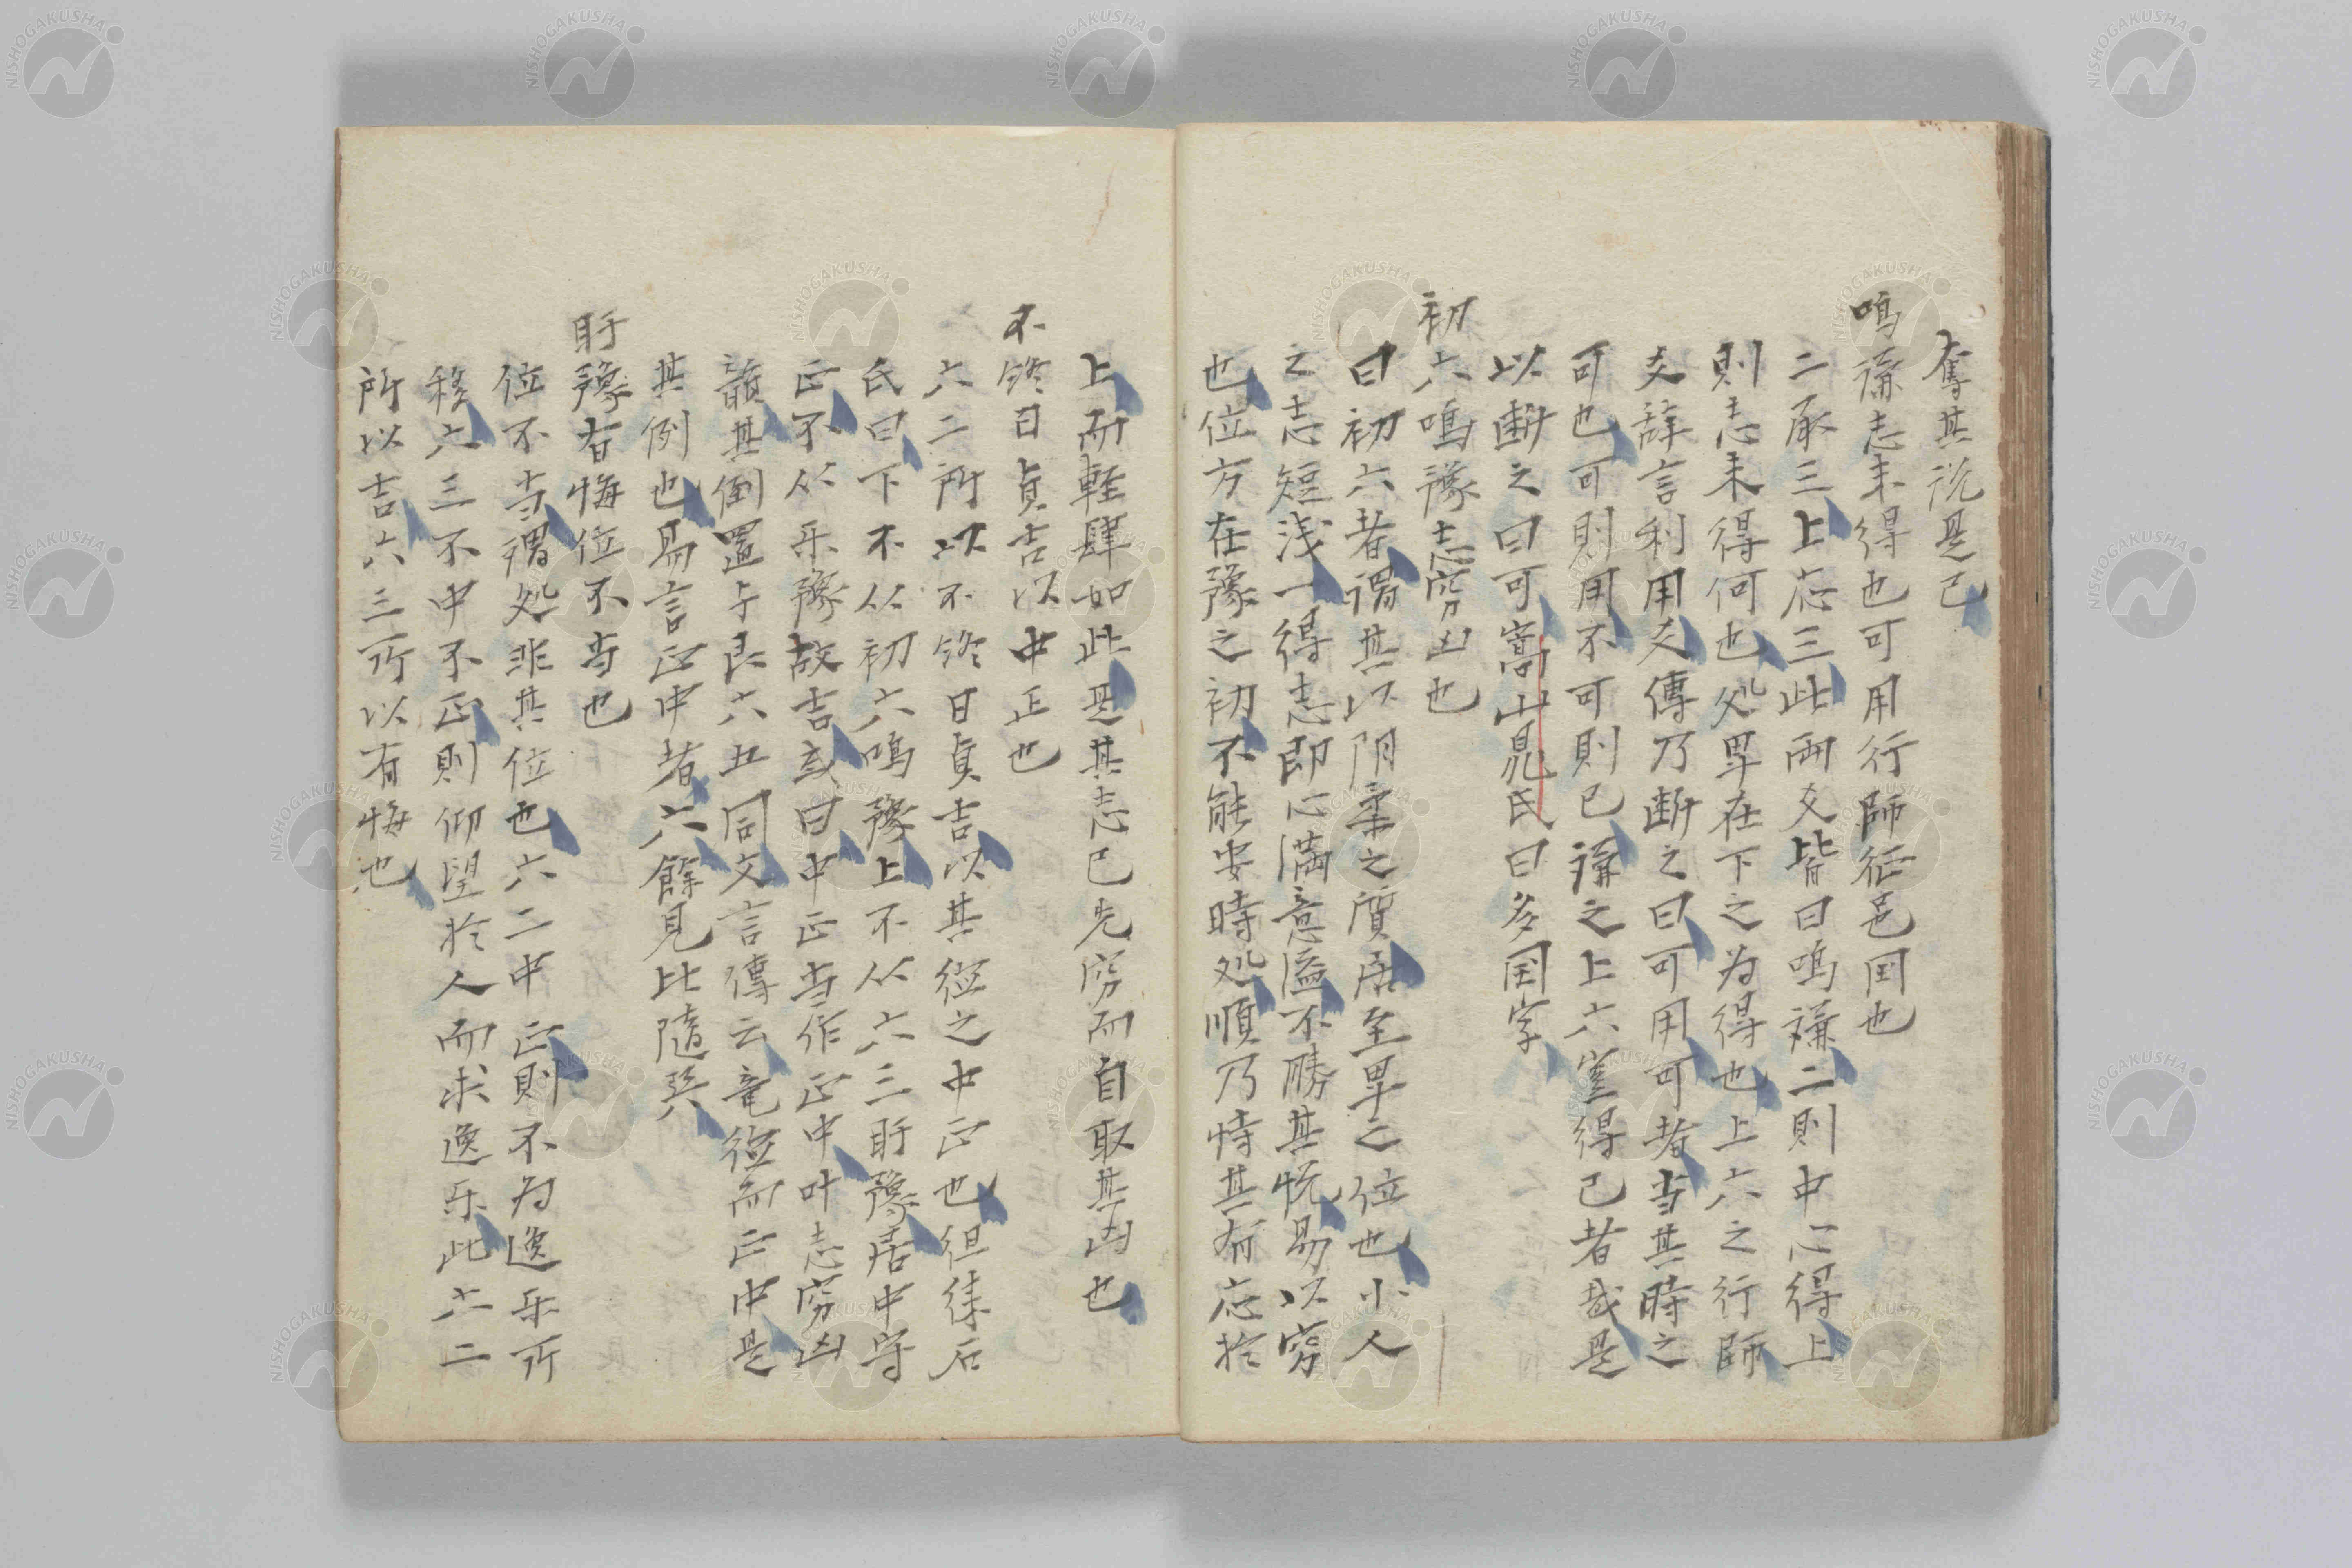 奪其説是已
鳴謙志未得也可用行師征邑国也
二承三上応三此両爻皆曰鳴謙二則中心得上
則志未得何也処卑在下之為得也上六之行師
爻辞言利用爻傳乃断之曰可用可者当其時之
可也可則用不可則已謙之上六豈得已者哉是
以断之曰可嵩山晁氏曰多国字
初六鳴豫志窮凶也
曰初六者謂其以阴柔之質居至卑之位也小人
之志短浅一得志即心満意溢不勝其悦易以窮
也位方在豫之初不能安時処順乃恃其有応於
上而軽肆如此是其志已先窮而自取其凶也
不終日貞吉以中正也
六二所以不終日貞吉以其徳之中正也但徐石
氏曰下不从初六鳴豫上不从六三盱豫居中守
正不从乐豫故吉或曰中正当作正中叶志窮凶
韻其倒置与艮六五同文言傳云竜徳而正中是
其例也易言正中者六餘見比隨巽
盱豫有悔位不当也
位不当謂処非其位也六二中正則不为逸乐所
移六三不中不正則仰望於人而求逸乐此六二
所以吉六三所以有悔也
NISHOGAKUSHA